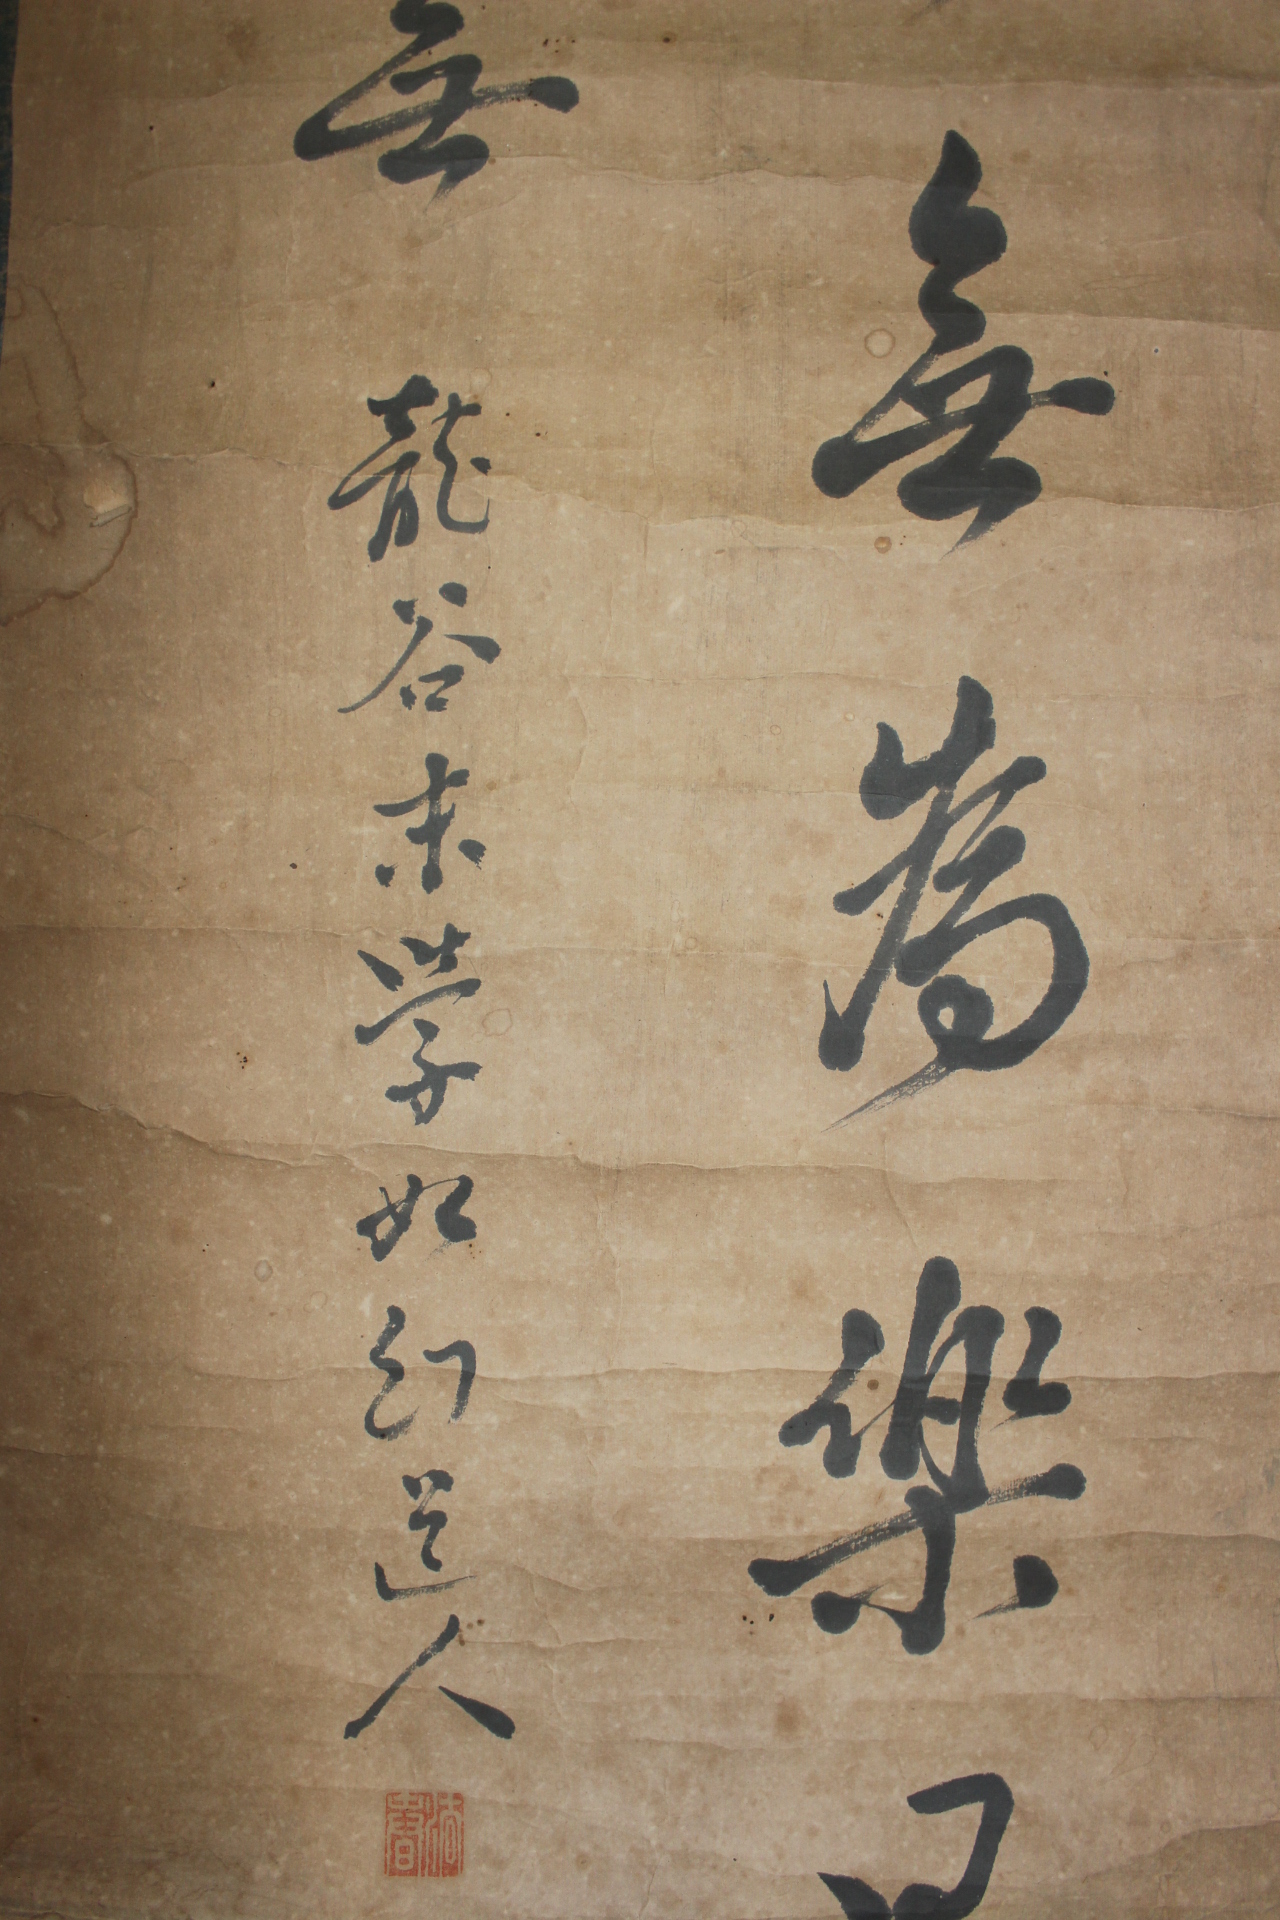 無為樂
無
龍谷末学如幻道人